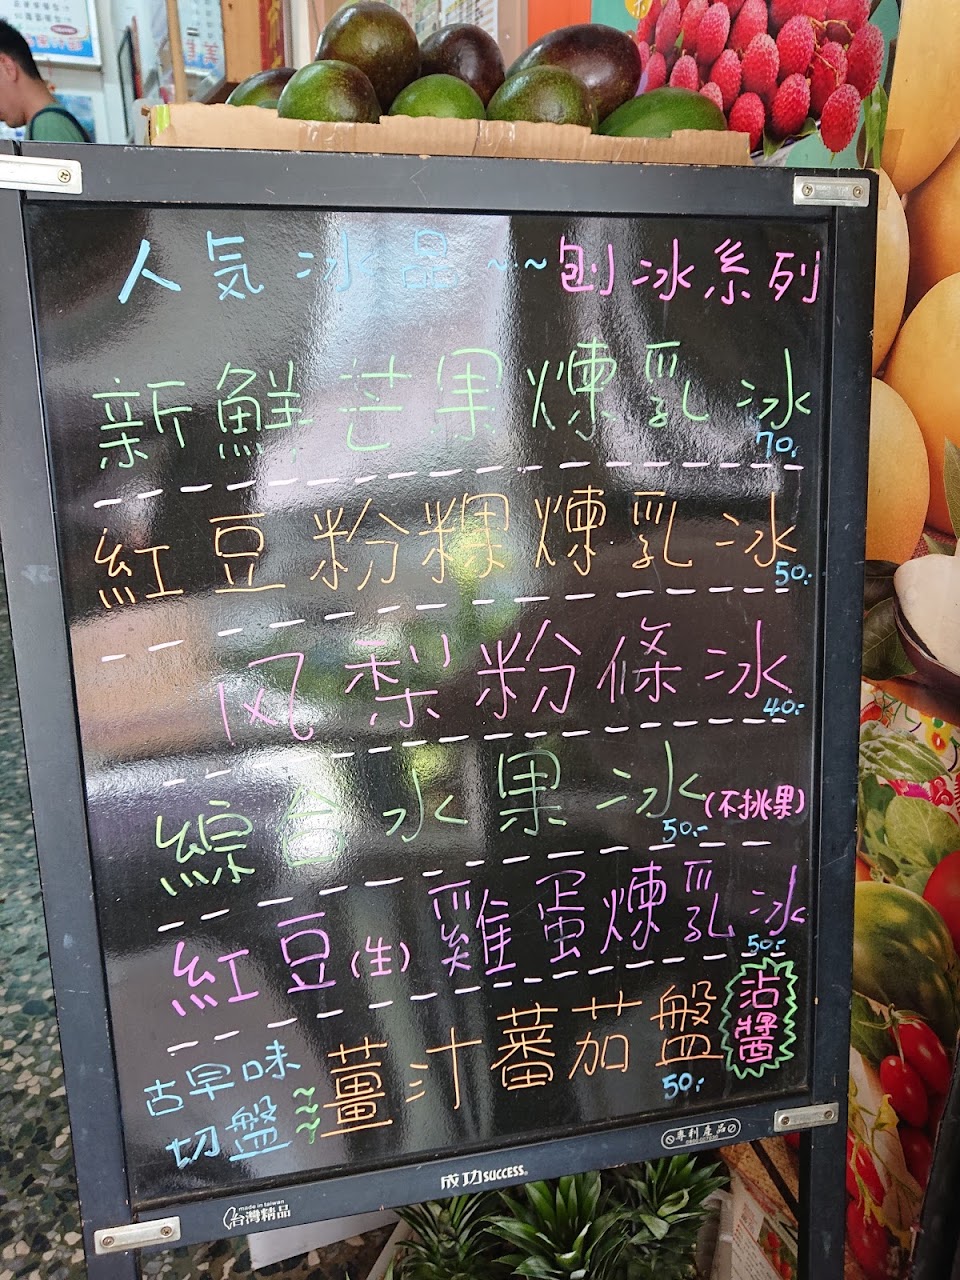 人氣冰品~~刨冰系列
新鮮芒果煉乳冰
70.
紅豆粉粿煉乳冰
50.-
凤梨粉條冰
40.-
綜合水果冰(不挑果)
50.-
紅豆(生)雞蛋煉乳冰
50.-
古早味
切盤~~~
薑汁蕃茄盤
沾醬
50.-
專利產品
成功SUCCESS®
made in taiwan
台灣精品